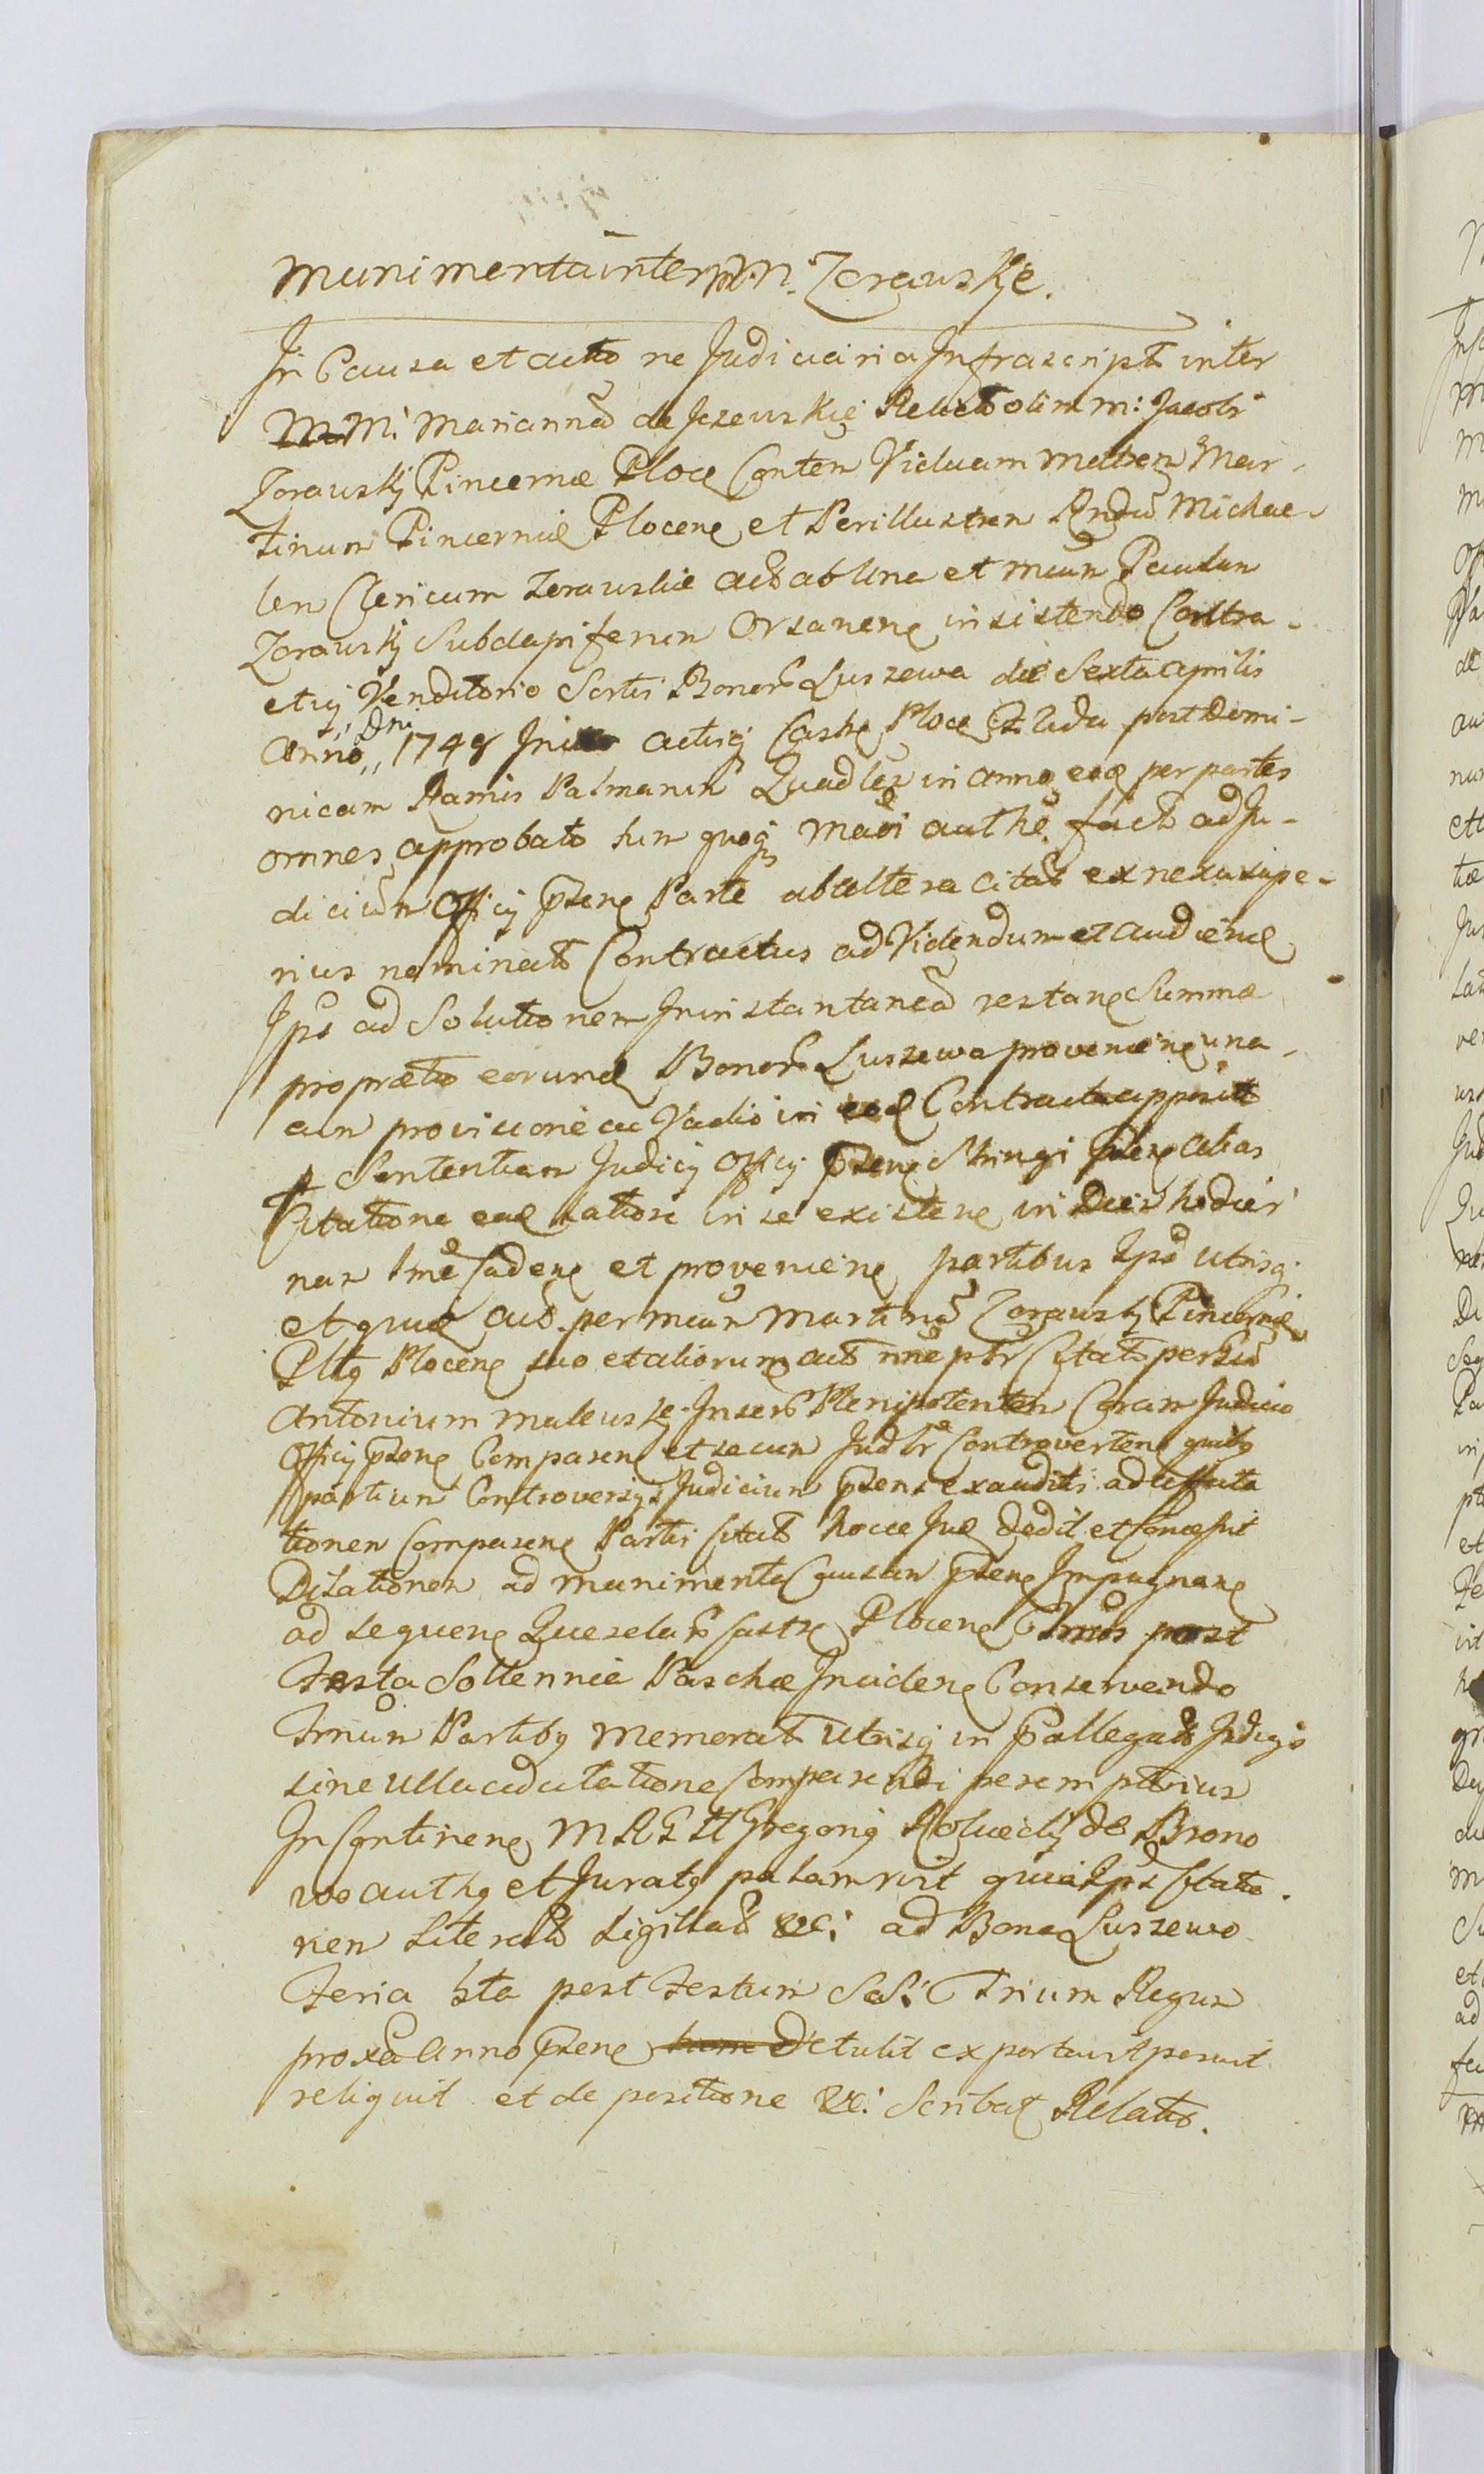 Munimenta inter MM. Zorawskie.
In Causa et actione Judiciaria Infrascript inter
M: Mariannã de Jezewskie Relictã olim M: Jacobi
Zorawskÿ Pincernæ Ploce Conten Viduam Matrem Mar-
tinum Pincernã Plocen et Perillustrem Rndũ Michae-
lem Clericum Zorawskie act ab Una et Mcum Paulum
Zorawskÿ Subdapiferum Orsanen insistendo Contra-
ctuj Venditorio Sortis Bonor Luszewa die Sexta Aprilis
Anno Dni 1748 Inito actisq Castr Ploce feria 2da post Domi-
nicam Ramis Palmarum Quadles in Anno eod per partes
omnes approbato tum quoq Madi authẽ fact ad Ju-
dicium Officij Psens Parte ab altera citat ex nexu supe-
rius nominat Contractus ad Videndum et audiend
Ips ad Solutionem Ininstantaneã restan Summæ
pro prætio eorund Bonor Luszewa provenien una
cum provisione ac Vadio in eod Contractu apposit
Sententiam Judicij Officij Psens Stringi alias
Citatione ead latiori in se existen in Dies hodier
nas Tme Caden et provenien partibus Ips Utrisq
et quid act per Mcum Martinũ Zorawskÿ Pincernã
Pltg Plocen suo et aliorum act nne ptr Citat per
Antonium Malewskj Inser Plenipotentem Coram Judicio
Officij Psens Comparen et secum Judlr Controverten quibg
partium Controversijs Judicium Psens exauditis ad affecta
tionem Comparen Partis Citat hocce Jud dedit et Concessit
Dilationem ad Munimenta Causam Psens Impugnan
ad sequen Querelar Castr Plocen Tmos post
Festa Sollennia Paschæ Inciden Conservando
Tmum Partibg Memorat Utrisq in Pallegat Judcijs
sine Ulla adcitatione Comparendi peremptorius
In Continen MRGH Gregorig de Brono
wo authg et Juratg palam rvit quia Ips Citatio-
nem Literal Sigillat &c: ad Bona Luszewo
Feria 5ta post Festum SaS: Trium Regum
proxa Anno Psens Detulit exportavit posuit
reliquit et de positione &c: Scribat Relatio.